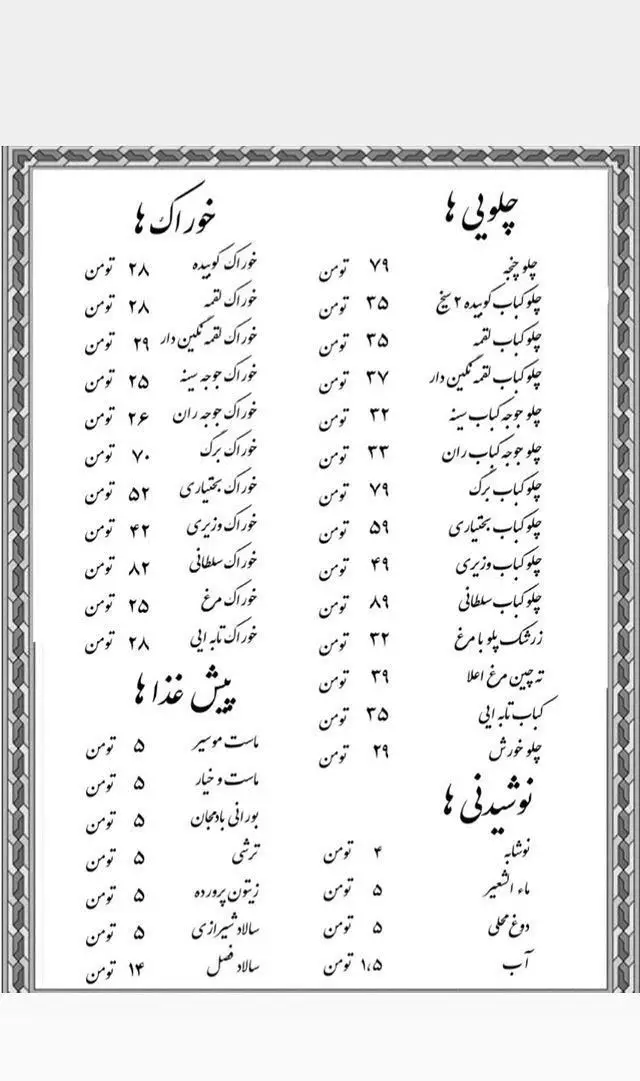 چلویی ها
چلو چنجه ۷۹ تومن
چلو کباب کوبیده ۲ سیخ ۳۵ تومن
چلو کباب لقمه ۳۵ تومن
چلو کباب لقمه نگین دار ۳۷ تومن
چلو جوجه کباب سینه ۳۲ تومن
چلو جوجه کباب ران ۳۳ تومن
چلو کباب برگ ۷۹ تومن
چلو کباب بختیاری ۵۹ تومن
چلو کباب وزیری ۴۹ تومن
چلو کباب سلطانی ۸۹ تومن
زرشک پلو با مرغ ۳۲ تومن
ته چین مرغ اعلا ۳۹ تومن
کباب تابه ایی ۳۵ تومن
چلو خورش ۲۹ تومن
نوشیدنی ها
نوشابه ۴ تومن
ماء الشعیر ۵ تومن
دوغ محلی ۵ تومن
آب ۱،۵ تومن
خوراک ها
خوراک کوبیده ۲۸ تومن
خوراک لقمه ۲۸ تومن
خوراک لقمه نگین دار ۲۹ تومن
خوراک جوجه سینه ۲۵ تومن
خوراک جوجه ران ۲۶ تومن
خوراک برگ ۷۰ تومن
خوراک بختیاری ۵۲ تومن
خوراک وزیری ۴۲ تومن
خوراک سلطانی ۸۲ تومن
خوراک مرغ ۲۵ تومن
خوراک تابه ایی ۲۸ تومن
پیش غذا ها
ماست موسیر ۵ تومن
ماست و خیار ۵ تومن
بورانی بادمجان ۵ تومن
ترشی ۵ تومن
زیتون پرورده ۵ تومن
سالاد شیرازی ۵ تومن
سالاد فصل ۱۴ تومن